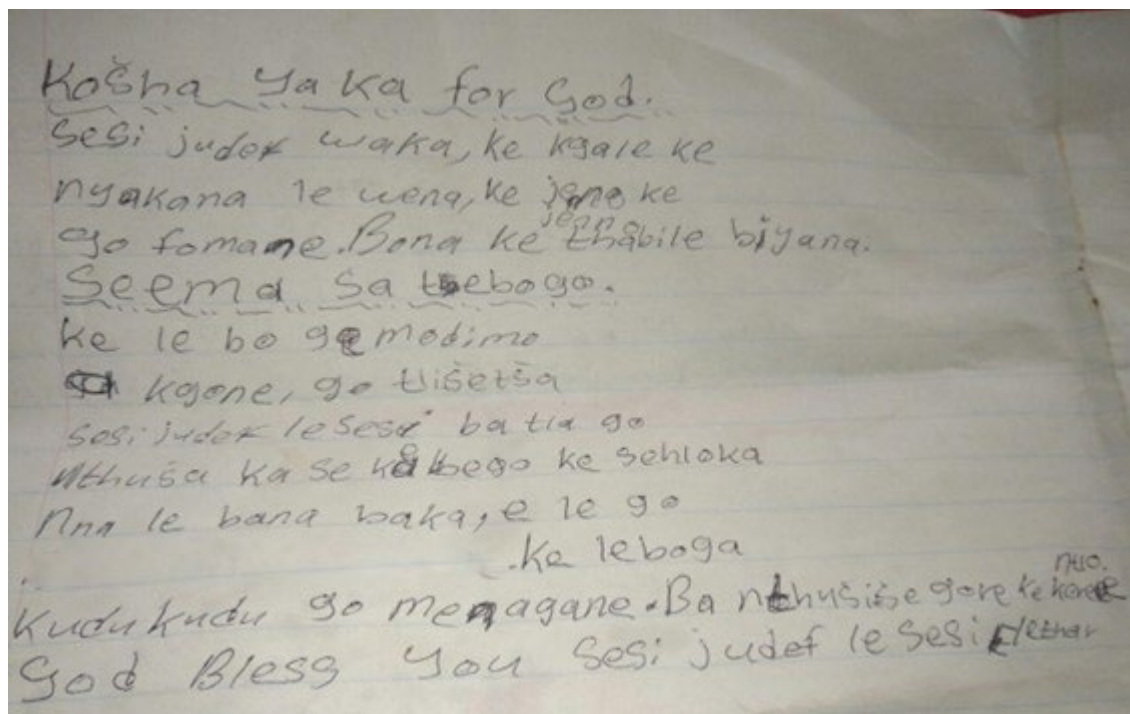 Košha ya ka for God.
Sesi judef waka, ke kgale ke
nyakana le wena, ke jeno ke
jeno
go fomane. Bona ke thabile biyana.
Seema sa tebogo.
ke le bo ge modimo
kgone, go tlišetša
sesi judef le sesi ba tla go
nthuša ka se ka bego ke sehloka
Nna le bana baka, e le go
ke leboga
kudu kudu go menagane. Ba nthušiše gore ke
ntlo.
God Bless you sesi judef le sesi